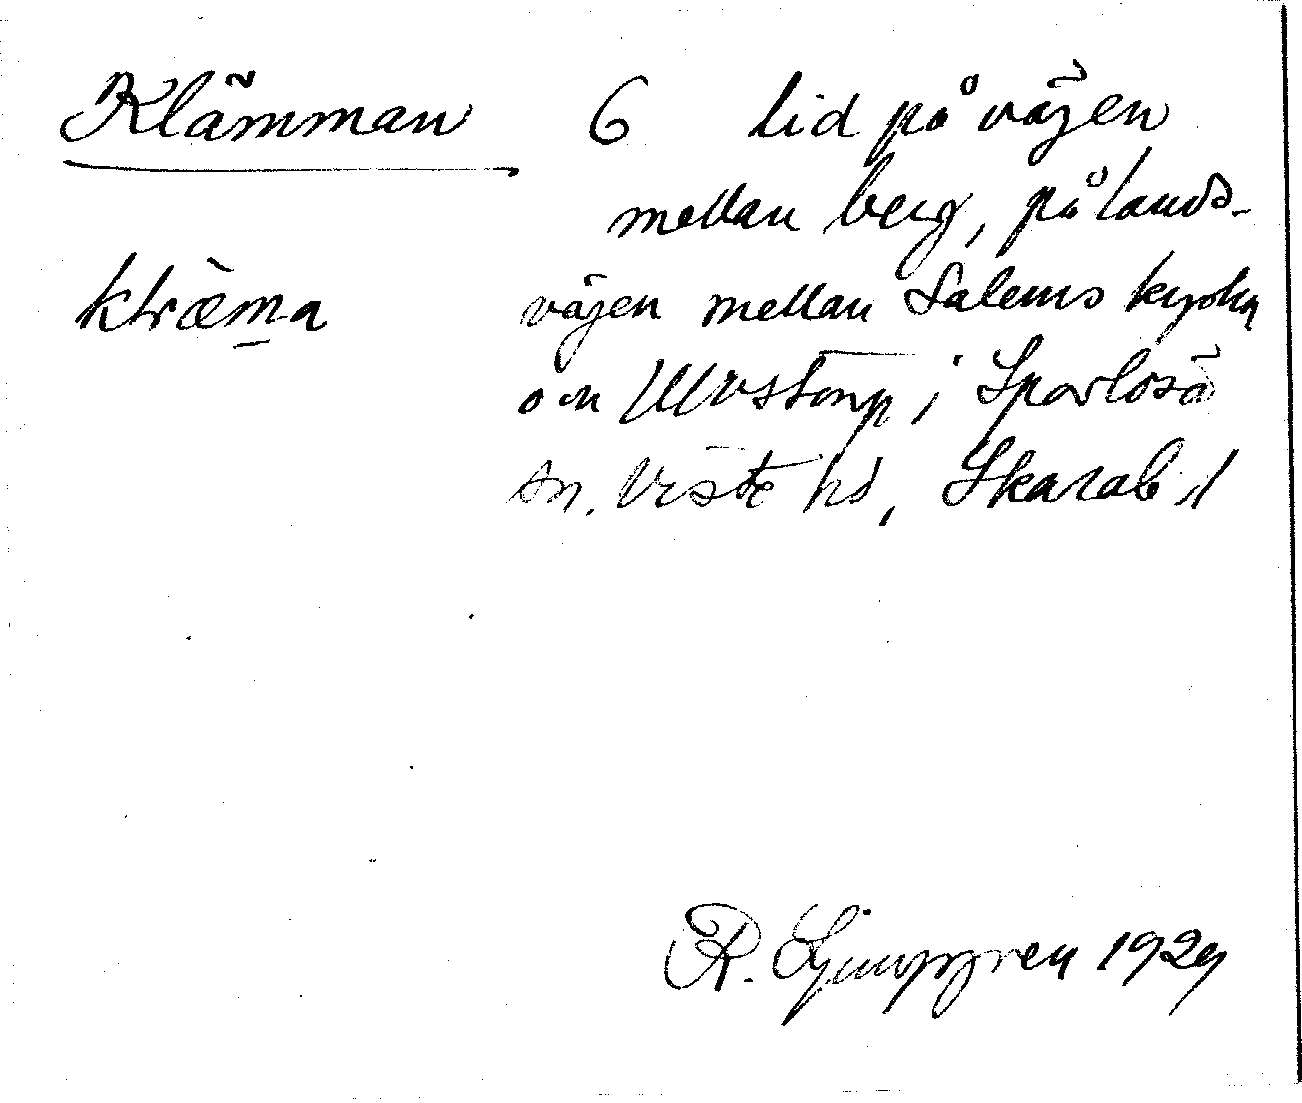 Klämman 6 lid på väjen
mellan berg, på lands-
klræma väjen mellan Salems kyrka
och Ulvstorp i Sparlösa
sn. Viste hd, Skarab. l
R. Ljunggren 1929